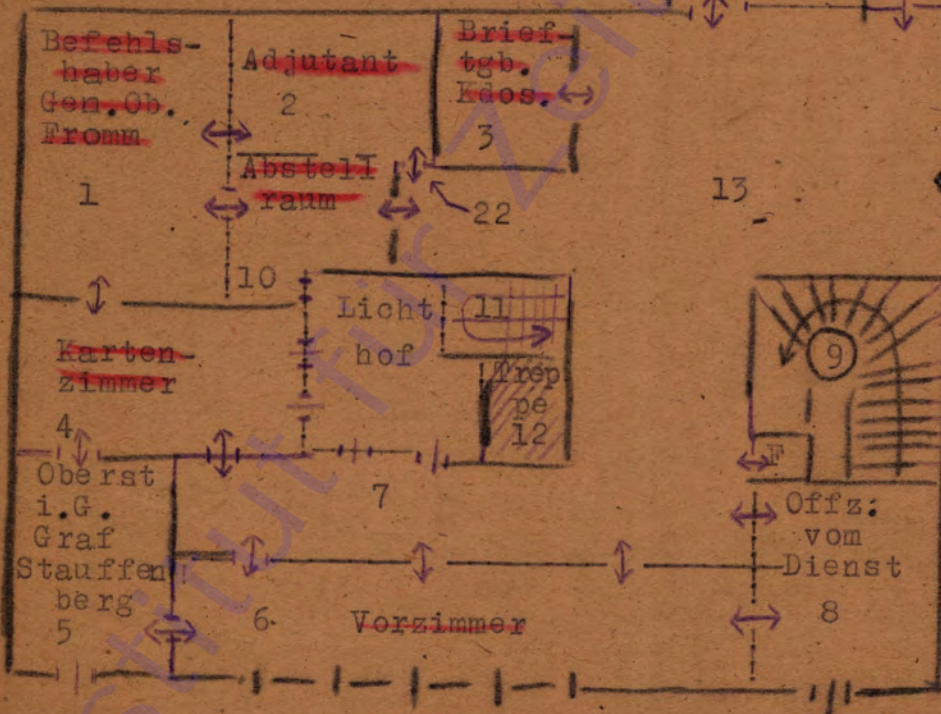 Befehls-
haber
Gen.Ob.
Fromm
1
Adjutant
2
Brief-
tgb.
Kdos.
3
Abstell
raum
22
13
10
Licht
hof
11
Trep
pe
12
9
F
Karten-
zimmer
4
Oberst
i.G.
Graf
Stauffen
berg
5
7
6.
Vorzimmer
Offz:
vom
Dienst
8
stitut für Zeit